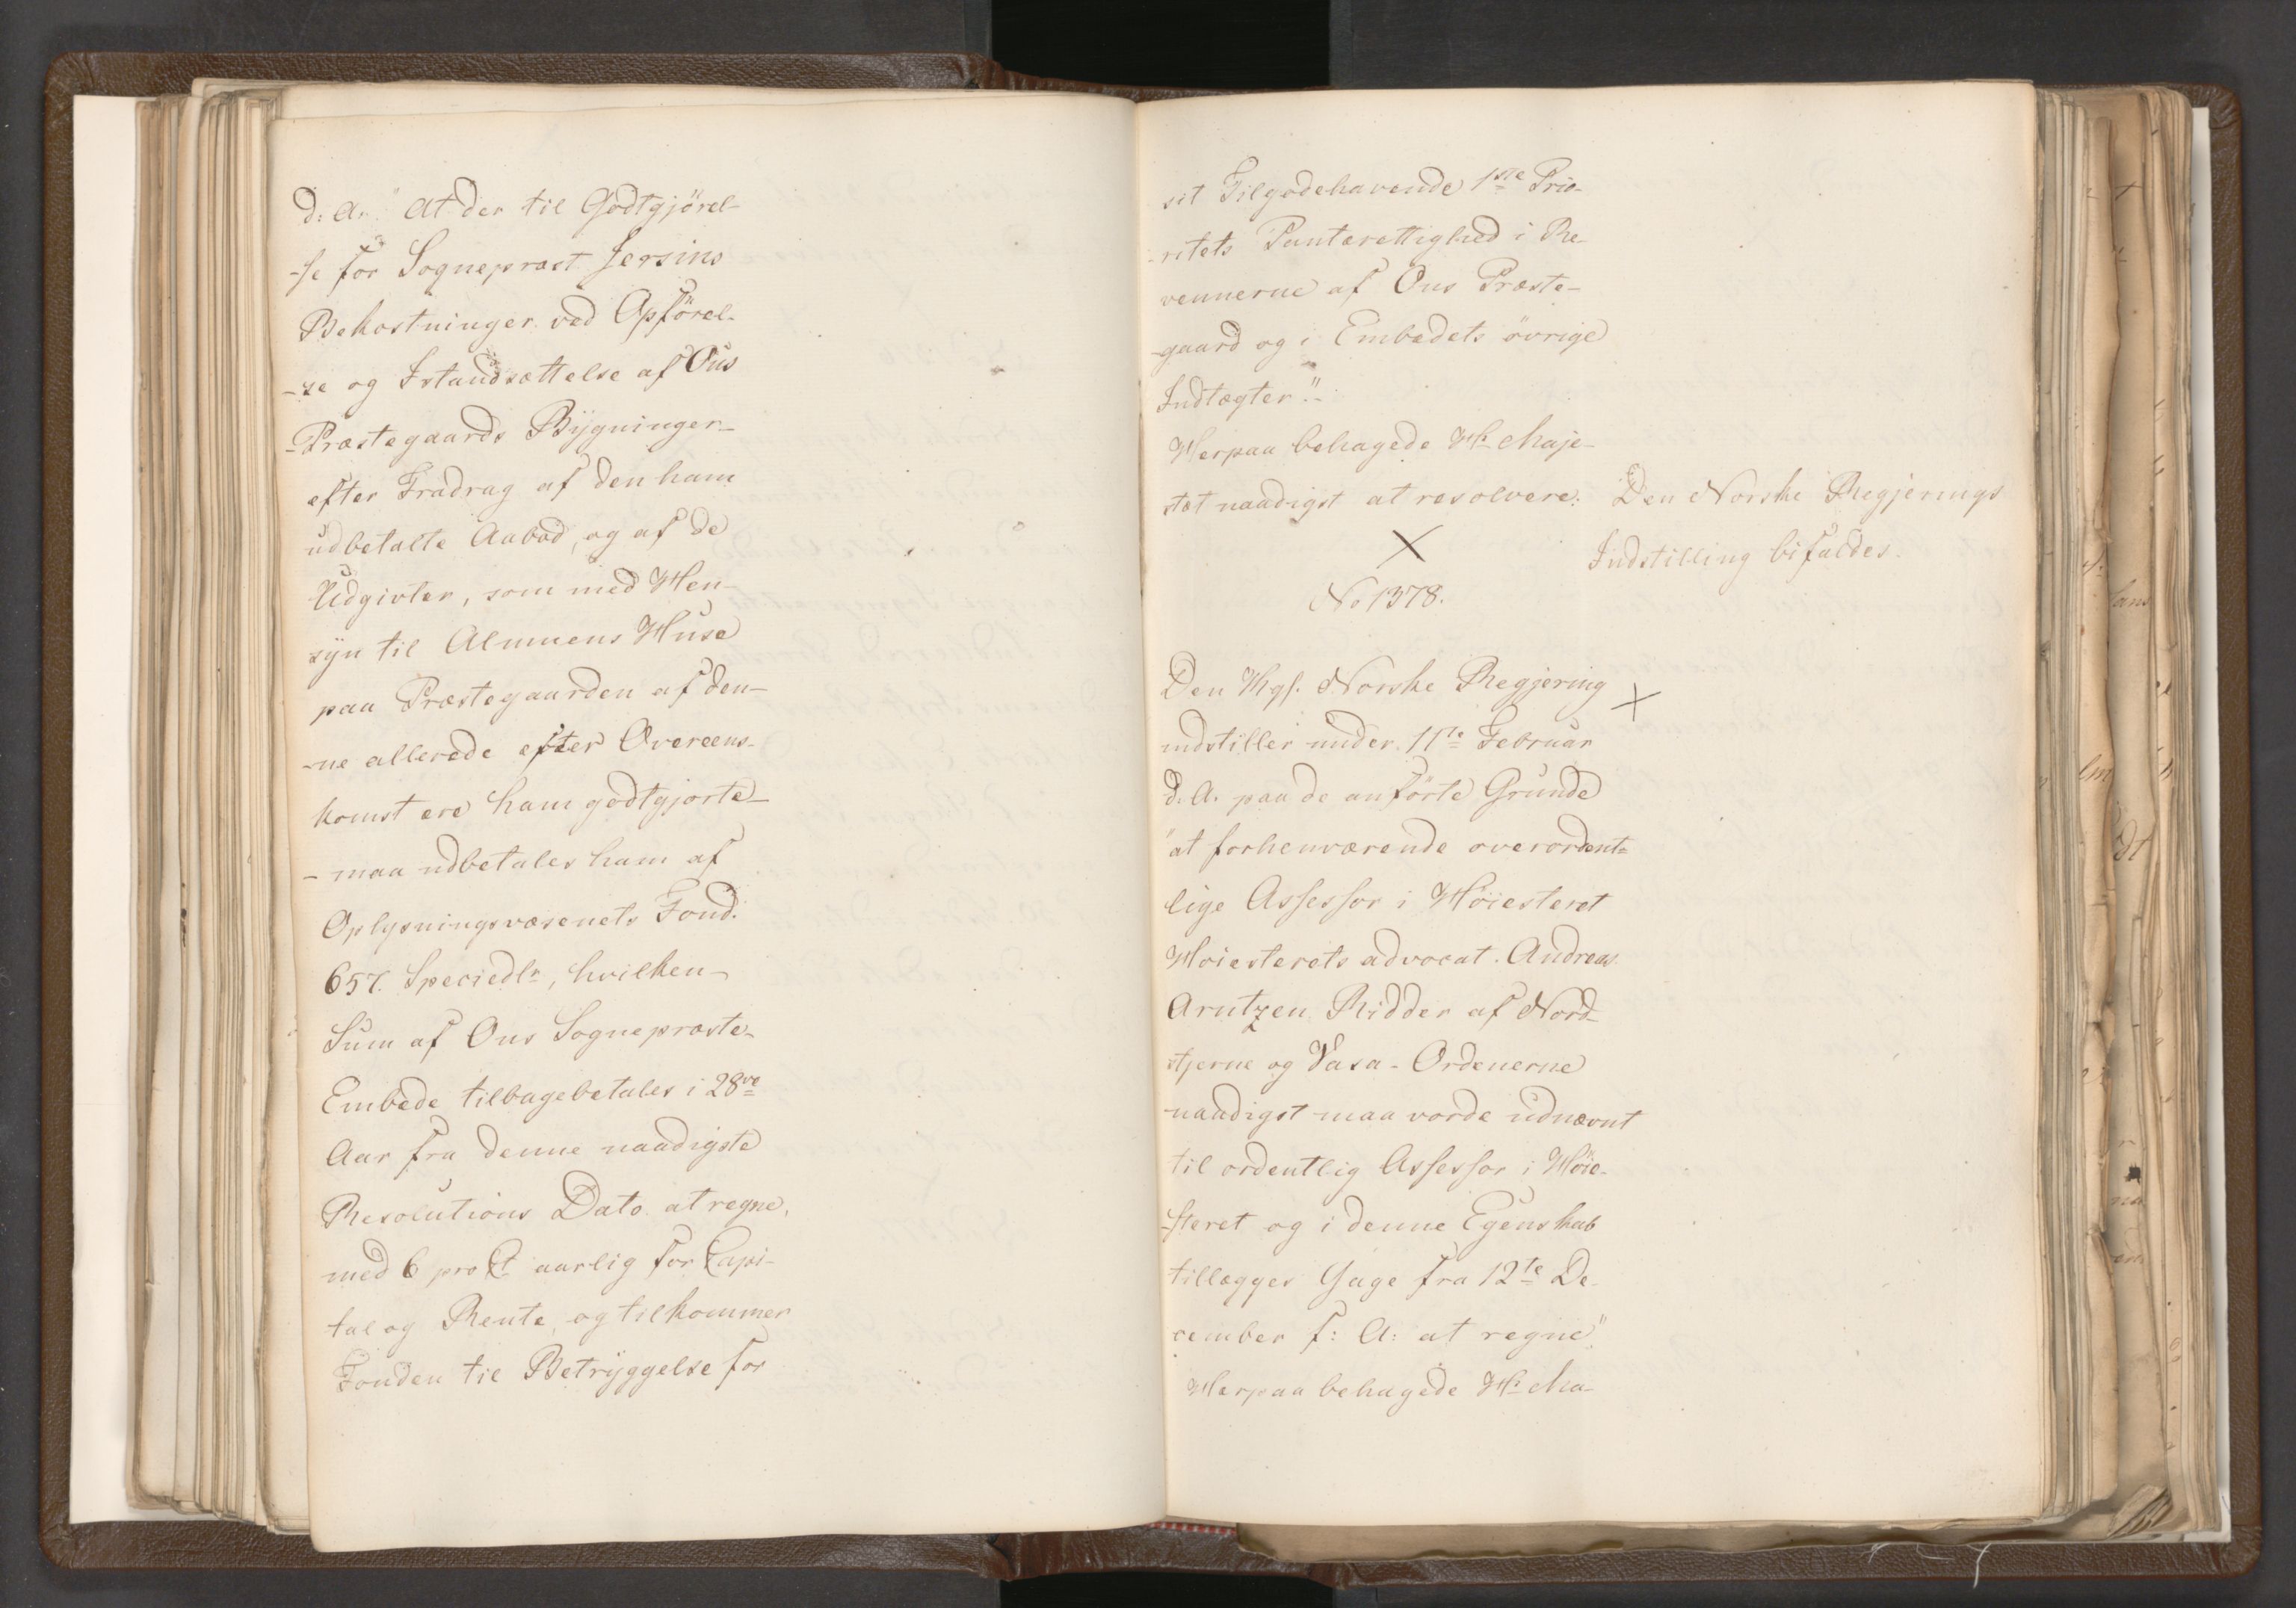 d: A: "at der til Godtgjörel-
-se for Sognepræst Jersins
Bekostninger ved Opförel-
-se og Istandsættelse af Ous
-Præstegaards Bÿgninger-
efter Fradrag af den ham
udbetalte Aabod, og af de
Udgivter, som med Hen-
sÿn til Almuens Huse
paa Præstegaarden af den-
-ne allerede efter Overeens-
komst ere ham godtgjorte-
- maa udbetales ham af
Oplysningsvæsenets Fond.
657. Speciedlr, hvilken-
Sum af Ous Sognepræste-
Embede tilbagebetales i 28ve
Aar fra denne naadigste
Resolutions Dato at regne,
med 6 pro Ct aarlig for Capi-
tal og Rente, og tilkommer
Fonden til Betrÿggelse for
sit Tilgodehavende 1ste Prio-
-ritets Panterettighed i Re-
vennerne af Ous Præste-
-gaard og i Embedets övrige
Indtægter".
Herpaa behagede Hs Maje-
stæt naadigst at resolvere: Den Norske Regjerings
Indstilling bifaldes.
No 1378.
Den Kgl. Norske Regjering
indstiller under 11te Februar
d: A. paa de anförte Grunde
"at forhenværende overordent-
lige Assessor i Höiesteret
Höiesterets advocat Andreas
Arntzen Ridder af Nord-
stjerne og Vasa-Ordenerne
naadigst maa vorde udnævnt
til ordentlig Assessor i Höie-
-steret og i denne Egenskab
tillægges Gage fra 12te De-
cember f: A: at regne".
Herpaa behagede Hs Ma-